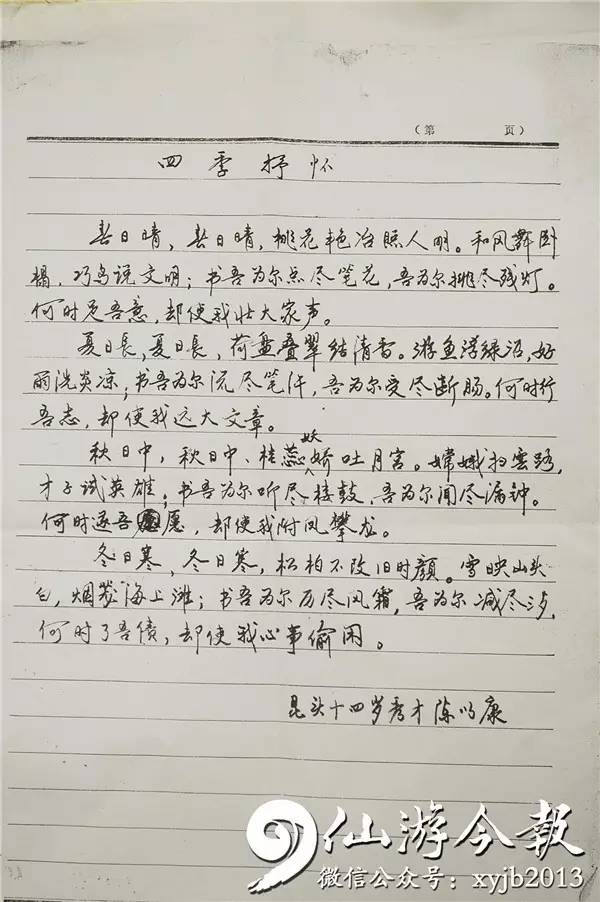 （第　　页）
四季抒怀
春日晴，春日晴，桃花艳冶照人明。和风舞卧
榻，巧鸟说文明；书吾为尔点尽笔花，吾为尔挑尽残灯。
何时足吾意，却使我壮大家声。
夏日長，夏日長，荷盘叠翠结清香。游鱼浮绿沼，好
雨洗炎凉；书吾为尔流尽笔汗，吾为尔受尽断肠。何时行
吾志，却使我远大文章。
秋日中，秋日中、桂蕊妖娇吐月宫。嫦娥扫雲路，
才子试英雄；书吾为尔听尽楼鼓、吾为尔闻尽漏钟。
何时遂吾愿，却使我附凤攀龙。
冬日寒，冬日寒，松柏不改旧时顏。雪映山头
白，烟笼海上滩；书吾为尔历尽风霜，吾为尔减尽
何时了吾债，却使我心事偷闲。
昆头十四岁秀才陈鸣康
仙游今報
微信公众号：xyjb2013